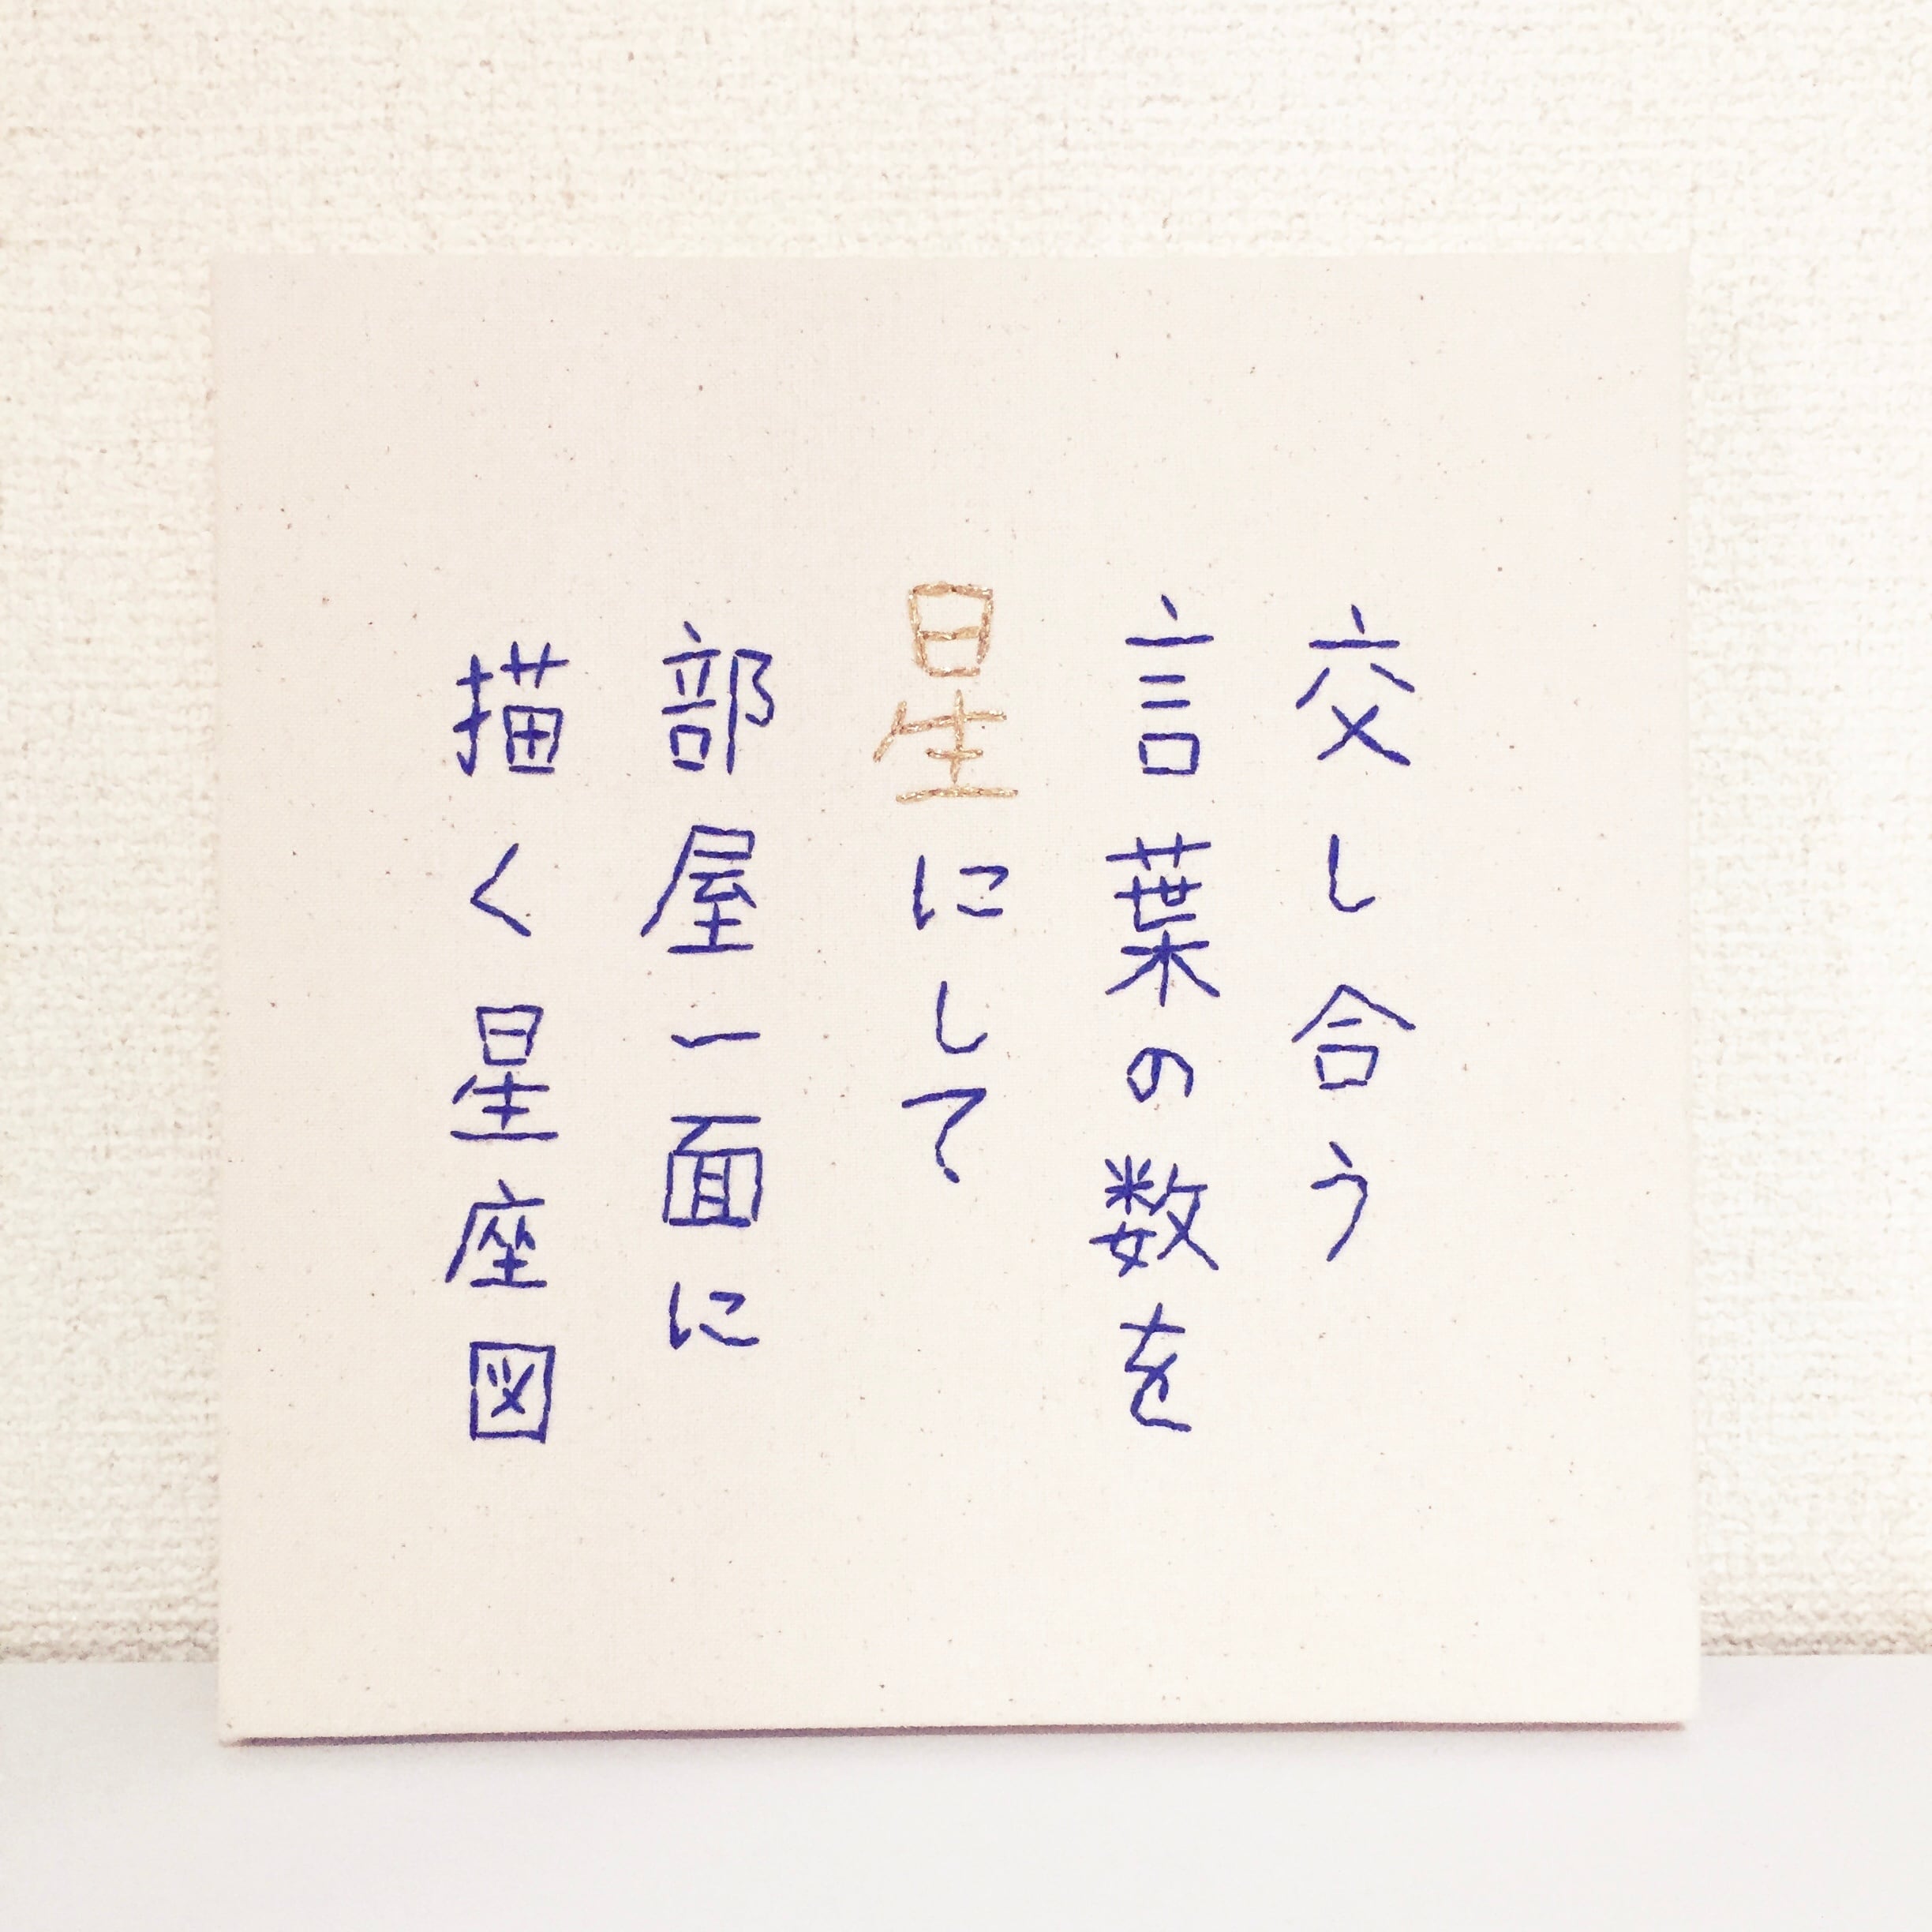 交し合う
言葉の数を
星にして
部屋一面に
描く星座図